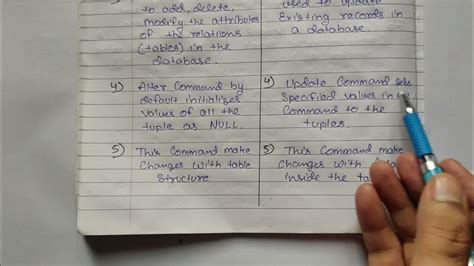 3)
to add, delete,
modify the attributes
of the relations
(tables) in the
database.
4) Alter Command by
default initializes
values of all the
tuple as NULL.
5) This Command make
changes with table
structure
used to update
Existing records in
a database.
4) Update Command sets
specified values in the
Command to the
tuples.
5) This Command make
changes with
inside the